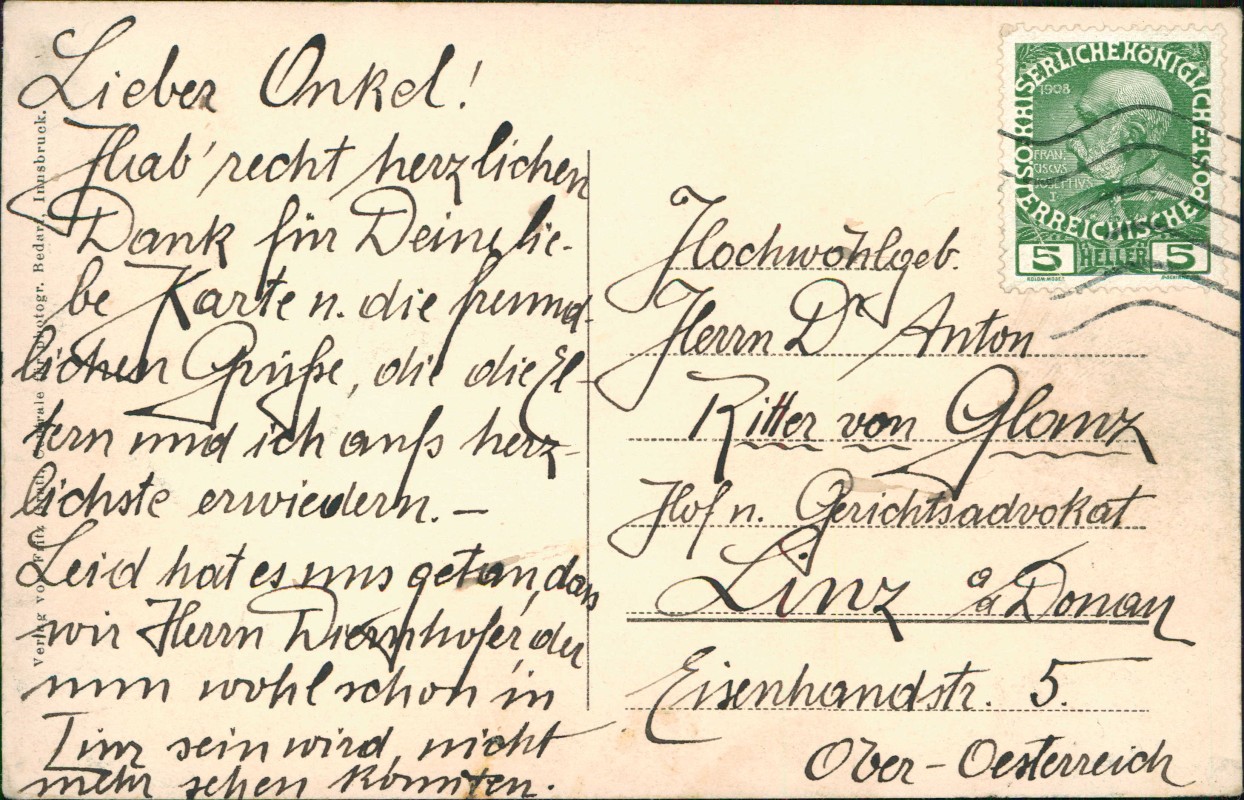 Lieber Onkel!
Hab' recht herzlichen
Dank für Deine lie-
be Karte u. die freund-
lichen Grüße, die die El-
tern und ich aufs herz-
lichste erwiedern. —
Leid hat es uns getan, dass
wir Herrn der
nun wohl schon in
Linz sein wird, nicht
mehr sehen konnten.
Hochwohlgeb.
Herrn Dr Anton
Ritter von Glanz
Hof u. Gerichtsadvokat
Linz a/d Donau
Eisenhandstr. 5.
Ober-Oesterreich
Verlag von Fritz Centrale für photogr. Bedarf, Innsbruck.
KAISERLICHE KÖNIGLICHE ÖSTERREICHISCHE POST
1908
FRAN-
CISCVS
JOSEPHVS
I
5 HELLER 5